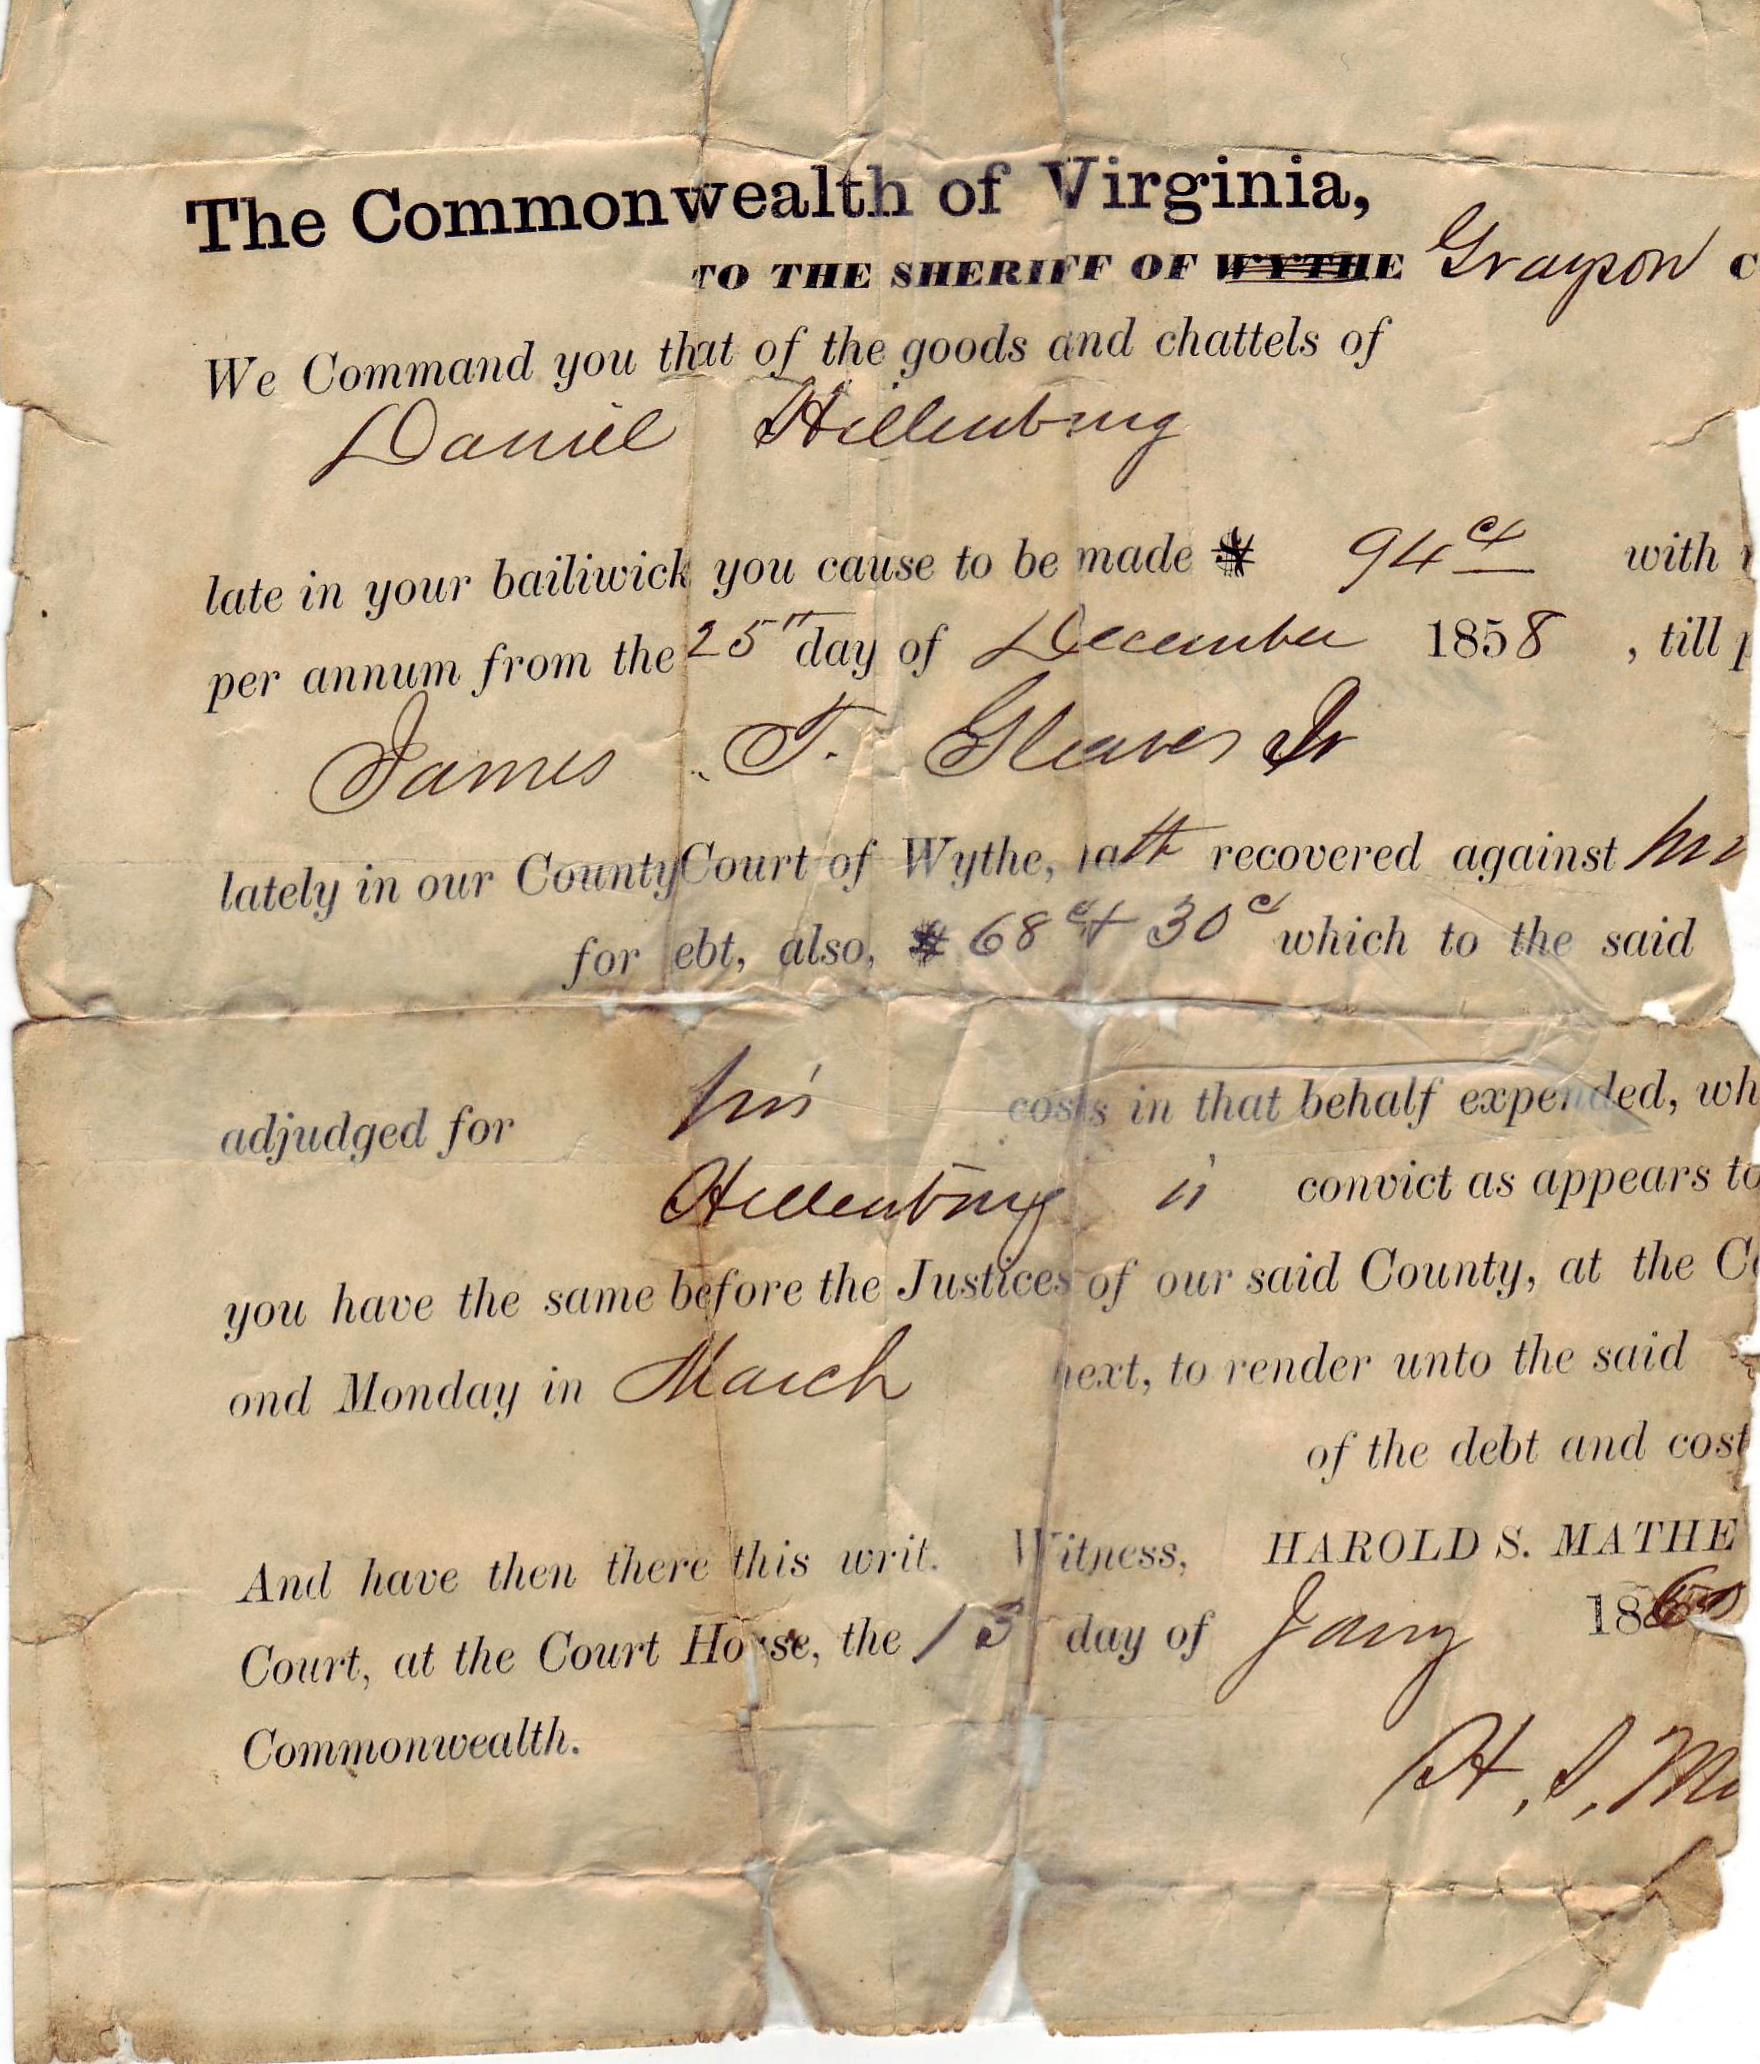 The Commonwealth of Virginia,
TO THE SHERIFF OF WYTHE Grayson C
We Command you that of the goods and chattels of
Daniel Hillenburg
late in your bailiwick you cause to be made $ 94 ct with
per annum from the 25th day of December 1858 , till p
James T. Gleaves Jr
lately in our County Court of Wythe, hath recovered against him
for ebt, also, $ 68 ct + 30 c which to the said
adjudged for his costs in that behalf expended, wh
Hillenburg is convict as appears to
you have the same before the Justices of our said County, at the Co
ond Monday in March next, to render unto the said
of the debt and cost
And have then there this writ. Witness, HAROLD S. MATHE
Court, at the Court House, the 13 day of Jany 1860
Commonwealth.
H. S. M